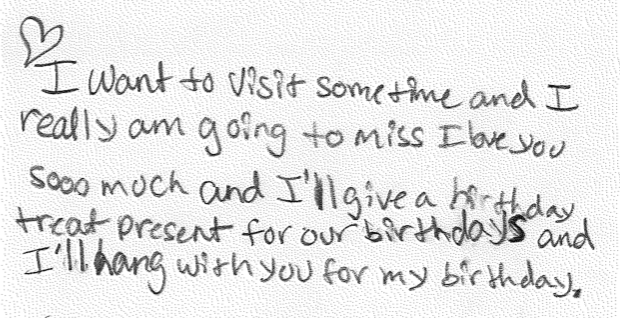 I want to visit sometime and I
really am going to miss I love you
sooo much and I'll give a birthday
treat present for our birthdays and
I'll hang with you for my birthday.